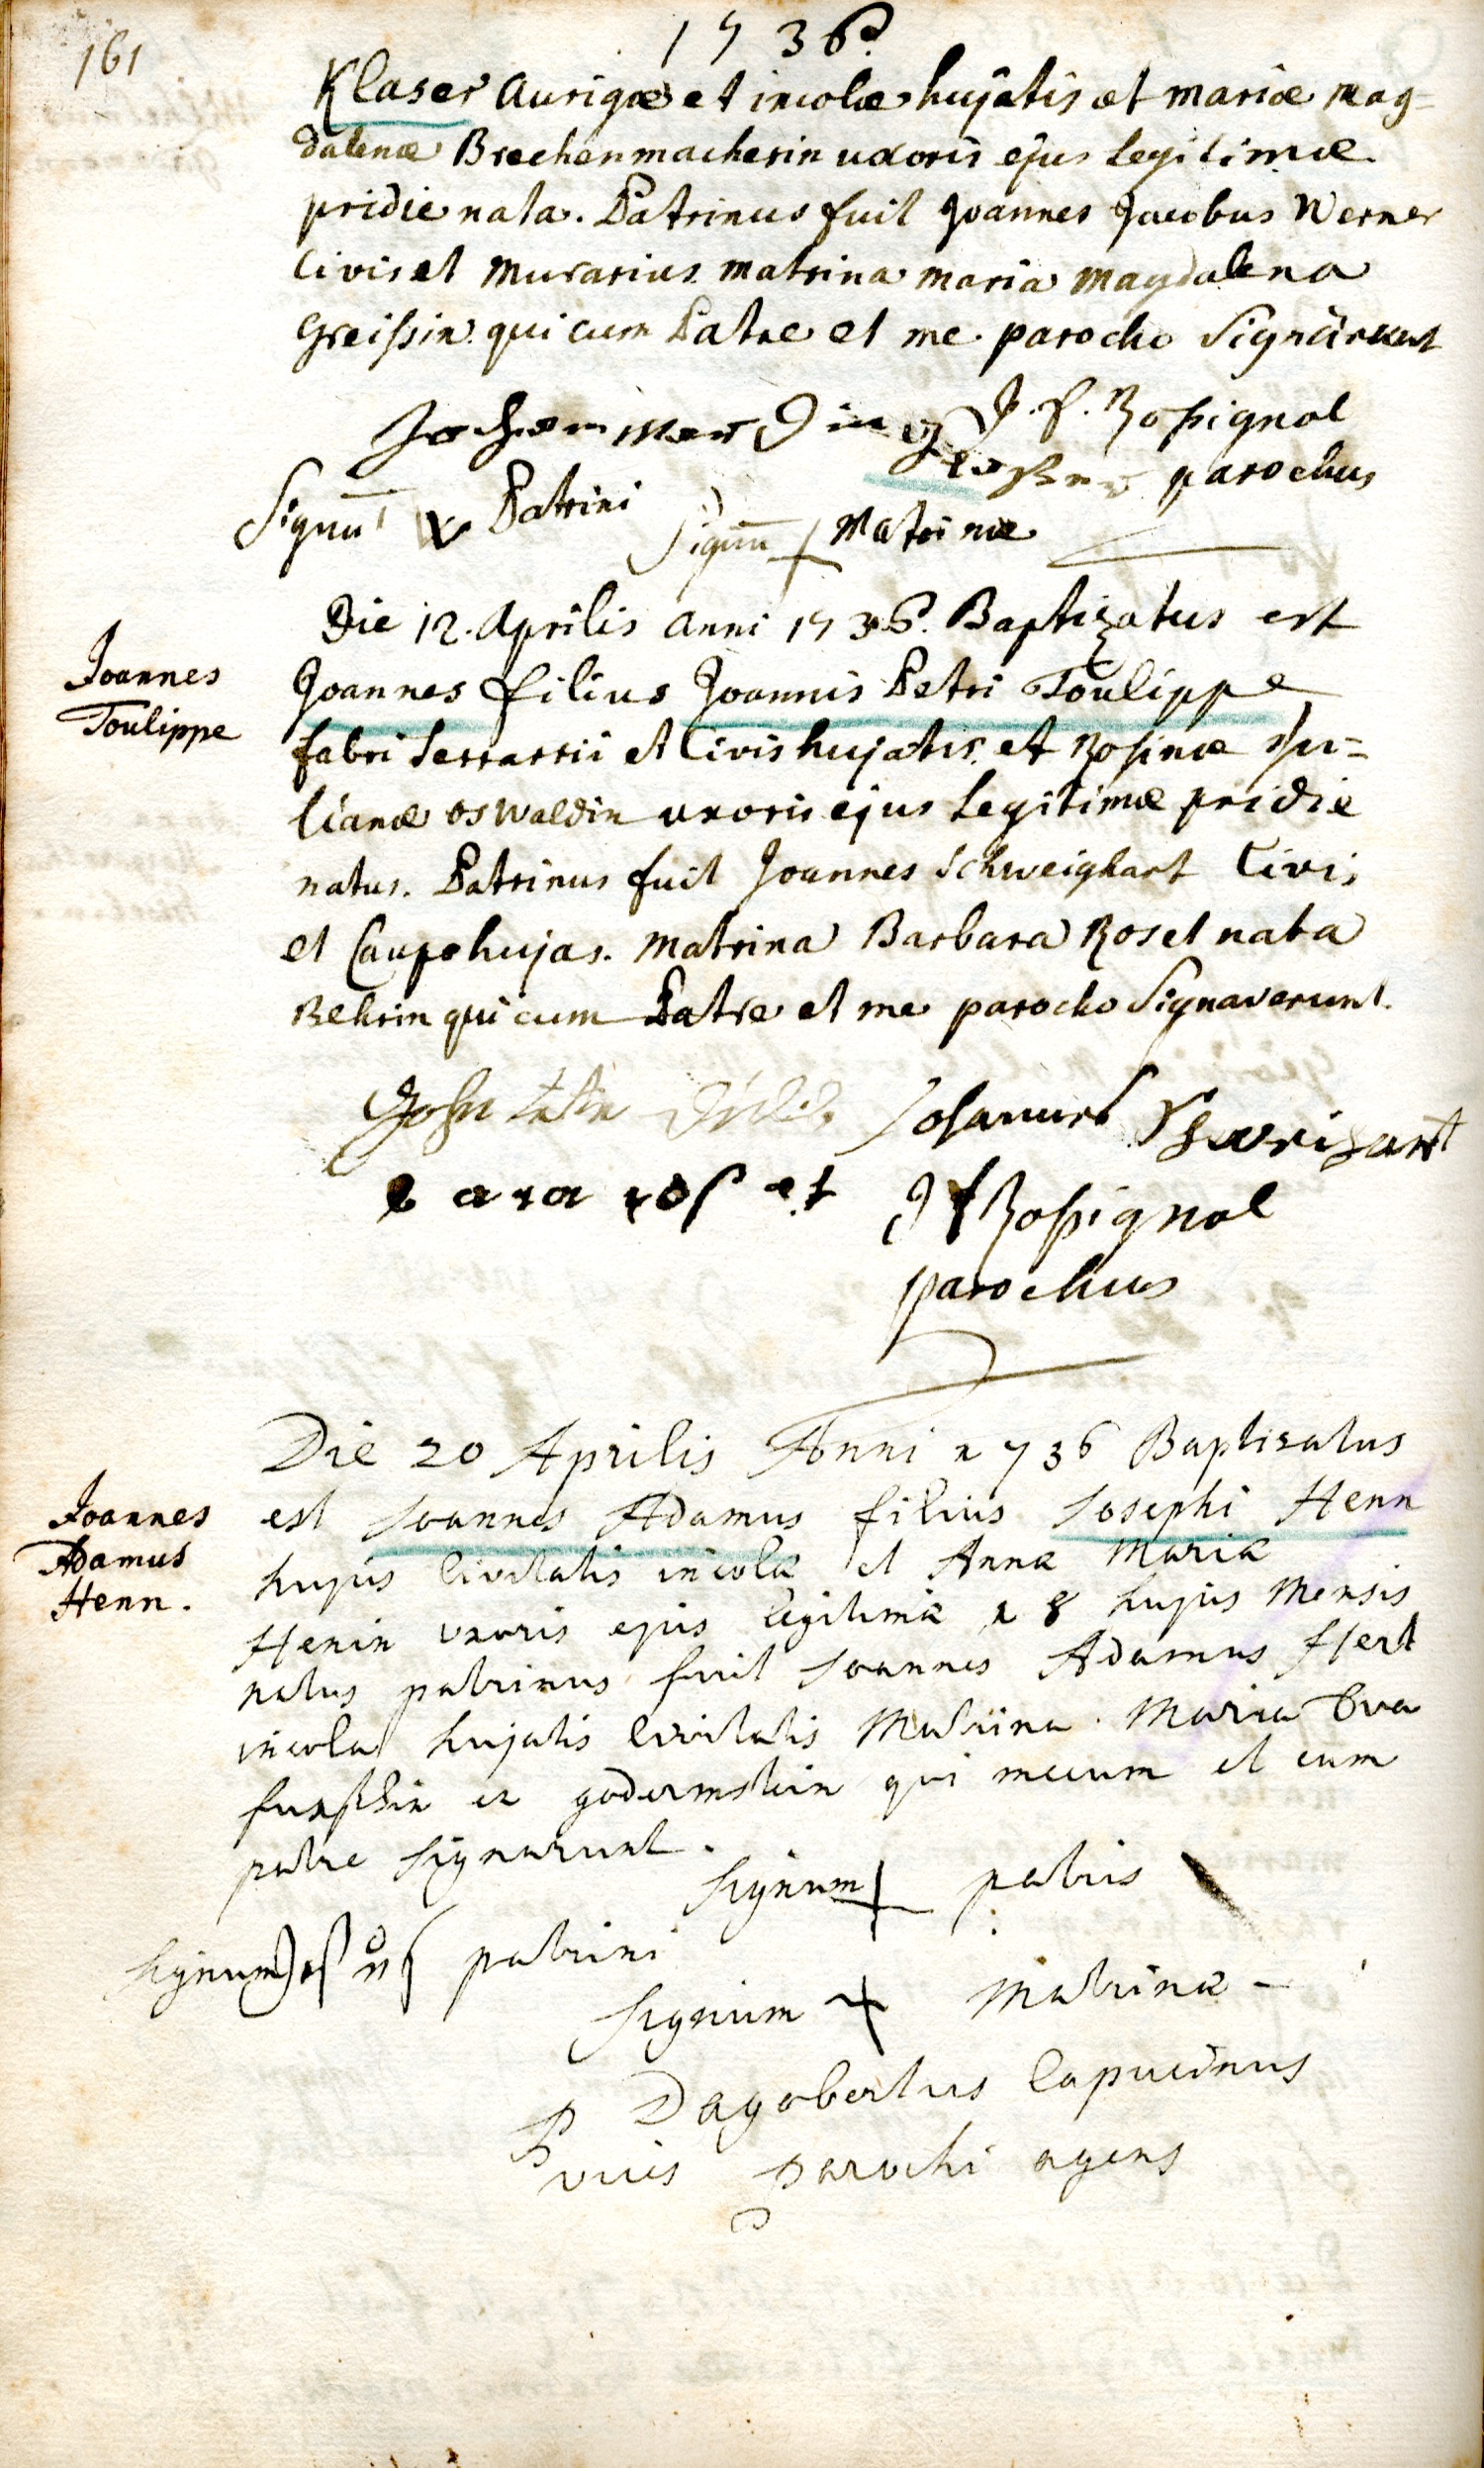 161
1736.
Klaser aurigæ et incolæ hujatis et mariæ mag=
dalenæ Brechenmacherin uxoris ejus legitimæ
pridie nata. Patrinus fuit Joannes Jacobus Werner
Civis et murarius matrina maria magdalena
Greissin qui cum Patre et me parocho signârunt
J. F. Rossignol
parochus
Signū Patrini
Signū + Matrinæ
Die 12. Aprilis anni 1736. Baptizatus est
Joannes
Toulippe
Joannes filius Joannis Petri Toulippe
fabri serrarrii et Civis hujatis et Rosinæ Ju=
lianæ oswaldin uxoris ejus legitimæ pridie
natus. Patrinus fuit Joannes Schweighart Civis
et Caupo hujas. matrina Barbara Roset nata
Behrin qui cum Patre et me parocho signaverunt.
J F Rossignol
parochus
Die 20 Aprilis Anni 1736 Baptisatus
Joannes
Adamus
Henn.
est Joannes Adamus filius Josephi Henn
hujus Civitatis incolæ et Annæ Mariæ
Henin uxoris ejus legitimæ 18 hujus Mensis
natus patrinus fuit Joannes Adamus Hert
incola hujatis Civitatis Matrina Maria Eva
ex godermstein qui mecum et cum
patre signarunt.
signum + patris
signum patrini
signum + Matrinæ
P Dagobertus Capucinus
vices parochi agens